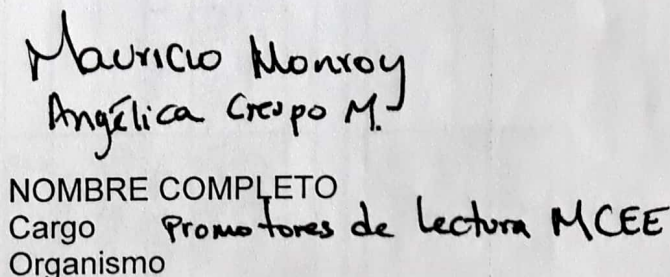 Mauricio Monroy
Angélica Crespo M.
NOMBRE COMPLETO
Cargo Promotores de lectura MCEE
Organismo